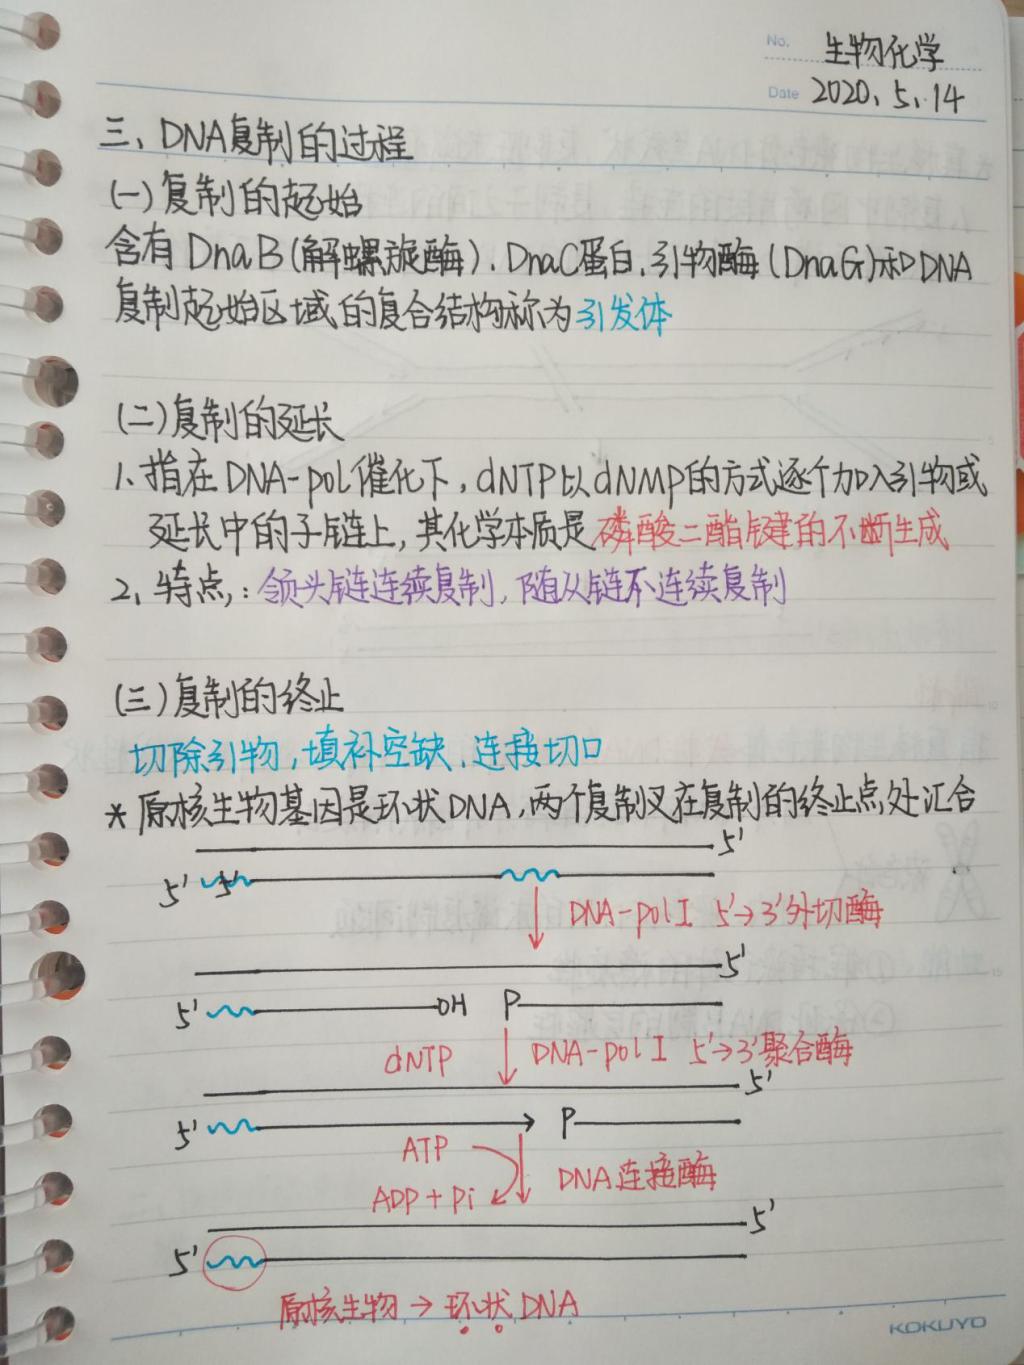 No. 生物化学
Date 2020.5.14
三、DNA复制的过程
(一)复制的起始
含有DnaB(解螺旋酶)、DnaC蛋白、引物酶(DnaG)和DNA
复制起始区域的复合结构称为引发体
(二)复制的延长
1、指在DNA-pol催化下,dNTP以dNMP的方式逐个加入引物或
延长中的子链上,其化学本质是磷酸二酯键的不断生成
2、特点:领头链连续复制,随从链不连续复制
(三)复制的终止
切除引物,填补空缺、连接切口
* 原核生物基因是环状DNA,两个复制叉在复制的终止点处汇合
5'
5' 5'
DNA-polⅠ 5'→3'外切酶
5'
5' OH P
dNTP DNA-polⅠ 5'→3'聚合酶
5'
5' P
ATP
DNA连接酶
ADP+Pi
5'
5'
原核生物→环状DNA
KOKUYO